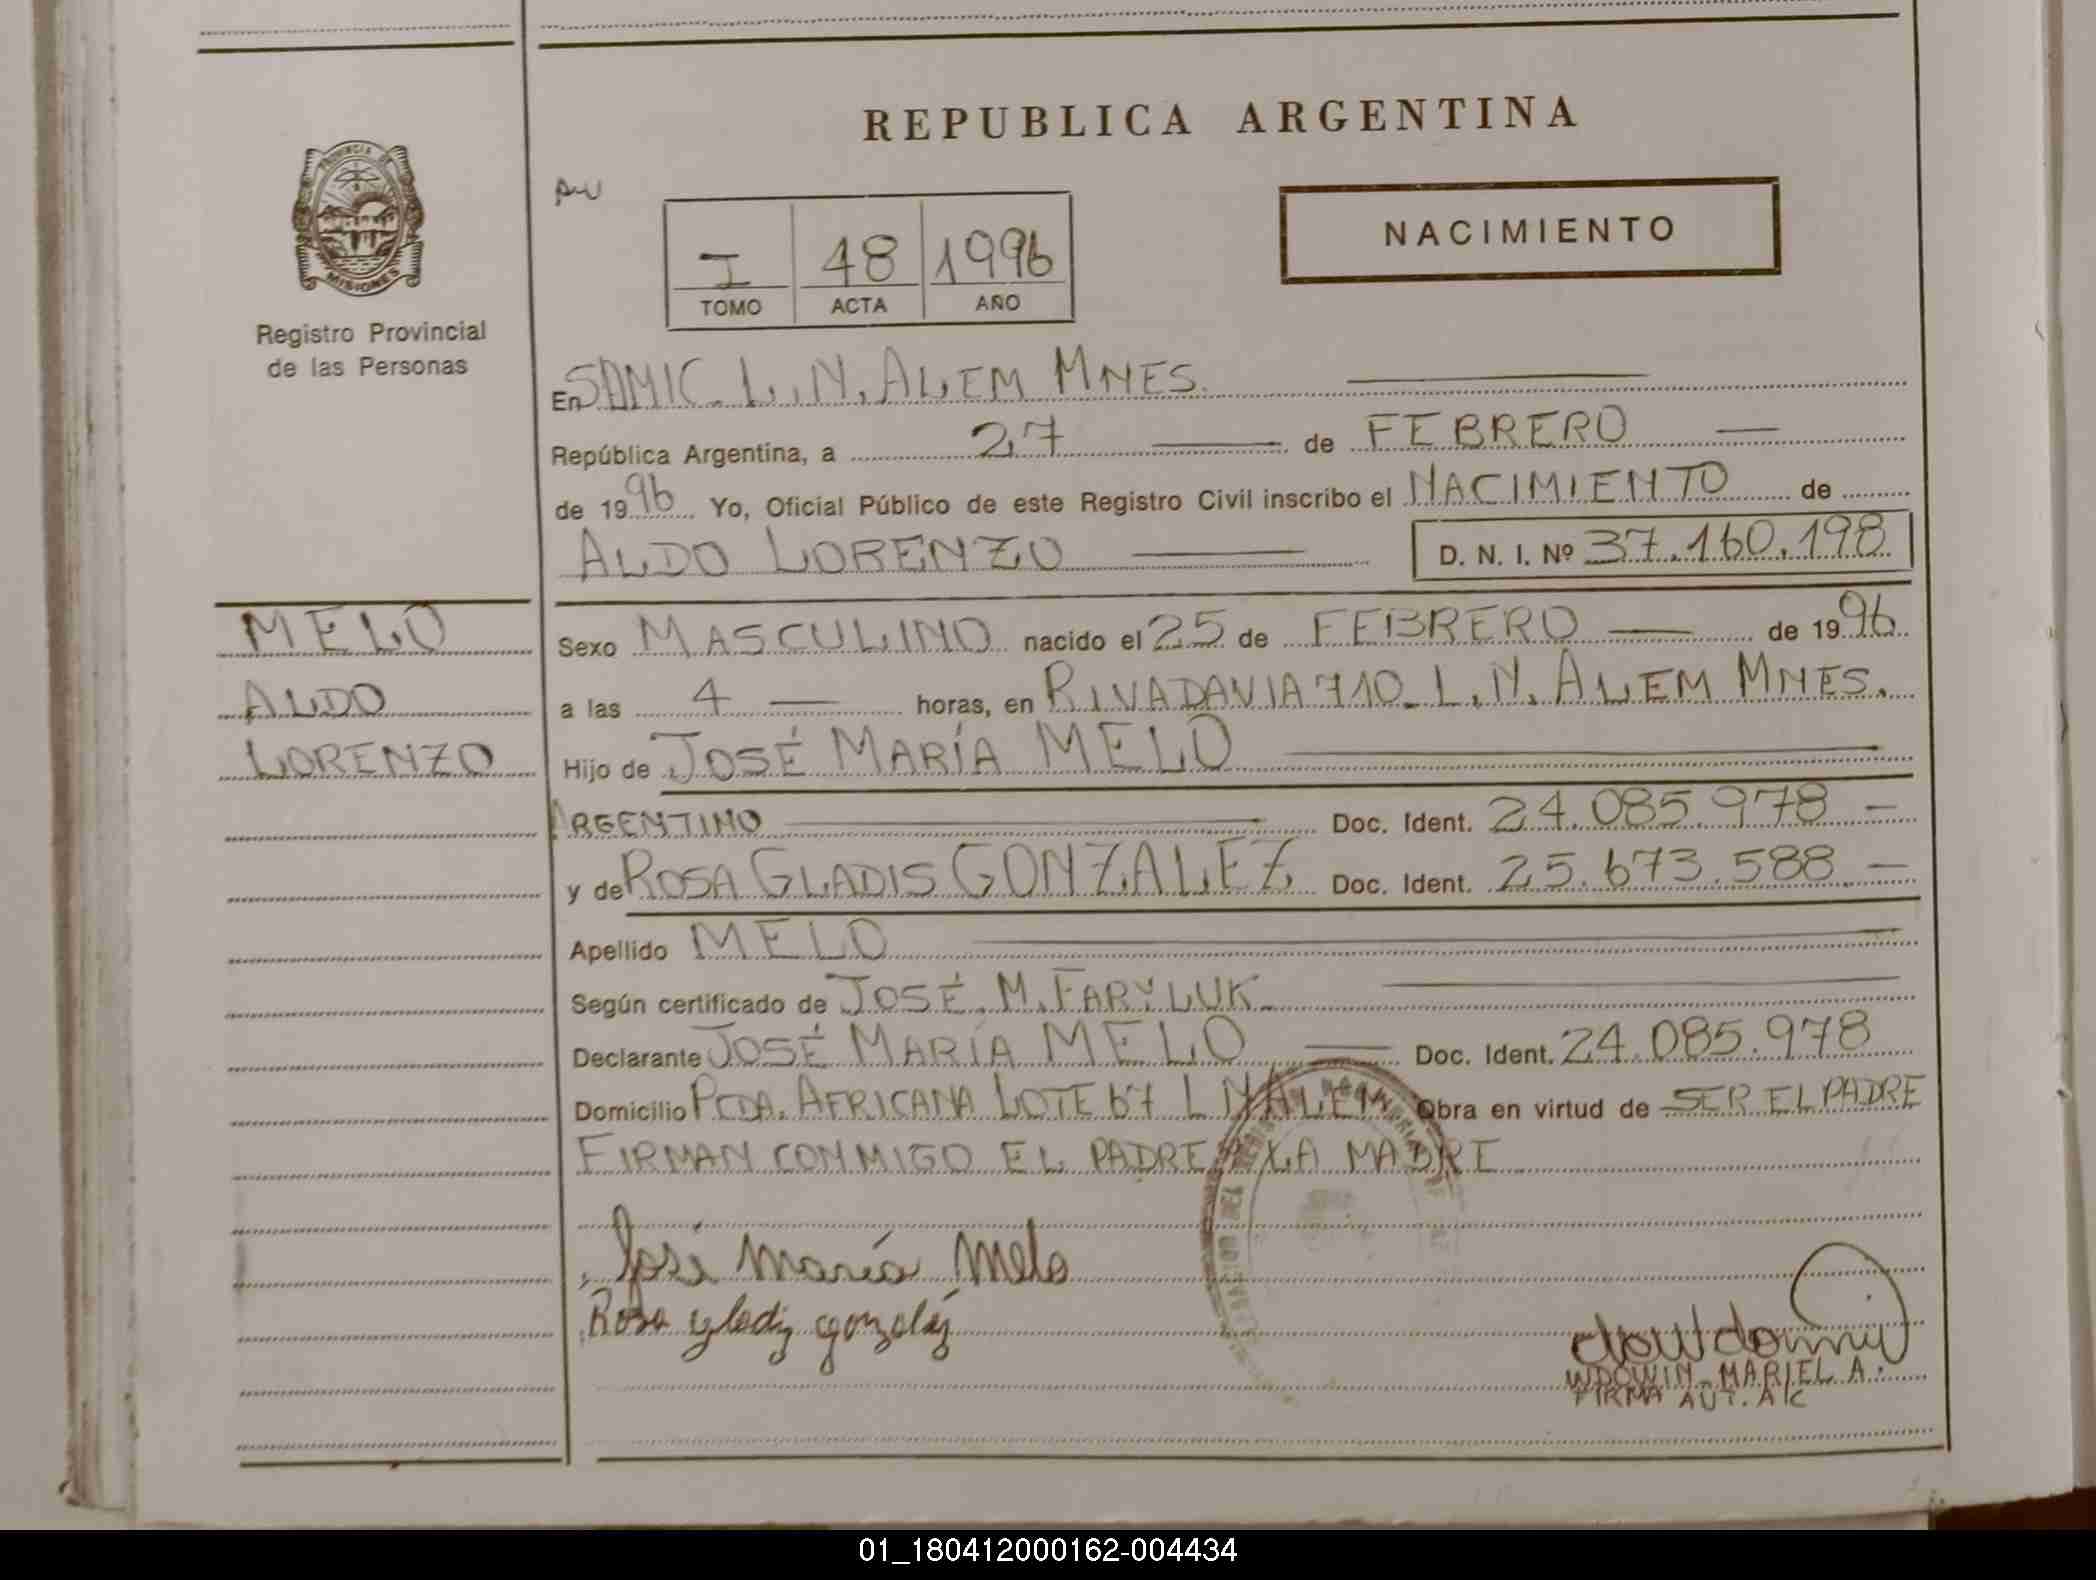 REPUBLICA ARGENTINA
PROVINCIA DE
MISIONES
Registro Provincial
de las Personas
I 48 1996
TOMO ACTA AÑO
NACIMIENTO
En SAMIC. L.N. ALEM MNES.
República Argentina, a 27 de FEBRERO
de 1996 Yo, Oficial Público de este Registro Civil inscribo el NACIMIENTO de
ALDO LORENZO D. N. I. Nº 37.160.198
MELO
ALDO
LORENZO
Sexo MASCULINO nacido el 25 de FEBRERO de 1996
a las 4 horas, en RIVADAVIA 710. L.N. ALEM MNES.
Hijo de JOSÉ MARÍA MELO
ARGENTINO Doc. Ident. 24.085.978
y de ROSA GLADIS GONZALEZ Doc. Ident. 25.673.588
Apellido MELO
Según certificado de JOSÉ M. FARYLUK
Declarante JOSÉ MARÍA MELO Doc. Ident. 24.085.978
Domicilio PCDA. AFRICANA LOTE 67 L N ALEM Obra en virtud de SER EL PADRE
FIRMAN CONMIGO EL PADRE LA MADRE
José María Melo
Rosa gladiz gonzaléz
WDOWIN MARIEL A.
FIRMA AUT. A/C
01_180412000162-004434